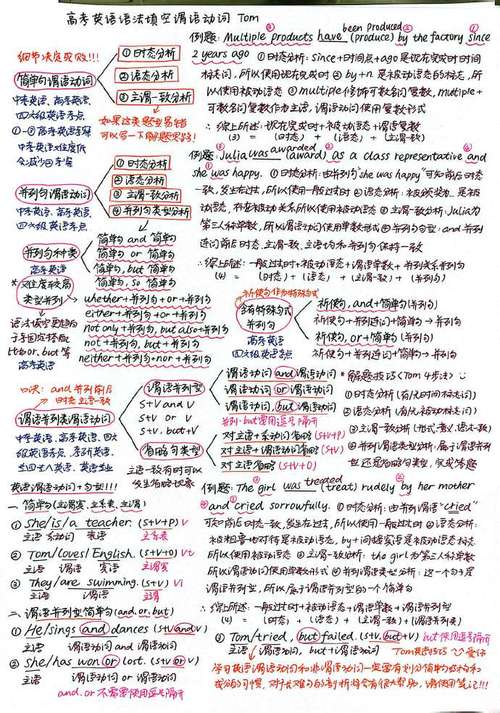 高考英语语法填空谓语动词 Tom
细节决定成败!!!
简单句谓语动词
① 时态分析
② 语态分析
③ 主谓一致分析
中考英语、高考英语
四六级英语考点
并列句谓语动词
① 时态分析
② 语态分析
③ 主谓一致分析
④ 并列句类型分析
中考英语、高考英语
四六级英语考点
并列句种类
高考英语
简单句 and 简单句
简单句 or 简单句
简单句, but 简单句
简单句, so 简单句
类型并列
whether+并列句+or+并列句
either+并列句+or+并列句
not only+并列句, but also+并列句
not+并列句, but+并列句
neither+并列句+nor+并列句
口诀: and并列前后
时态主谓一致
谓语并列类谓语动词
谓语并列型
谓语动词 and 谓语动词
谓语动词 or 谓语动词
谓语动词, but 谓语动词
S+V and V
S+V or V
S+V, but+V
省略句类型
对主语+系动词省略 (S+V+P)
对主语+谓语省略 (S+V)
对主语省略 (S+V+O)
英语谓语动词+句型!!!
一、简单句(主谓宾、主系表、主谓)
① She/is/a teacher. (S+V+P) V
主语 系动词 表语 主系表
② Tom/loves/English. (S+V+O) Vt
主语 谓语 宾语 主谓宾
③ They/are swimming. (S+V) Vi
主语 谓语 主谓
二、谓语并列型简单句(and, or, but)
① He/sings and dances (S+V and V)
主语 谓语动词 and 谓语动词
② she/has won or lost. (S+V or V)
主语 谓语动词 or 谓语动词
and, or 不需要使用逗号隔开
例题: Multiple products have been produced (produce) by the factory since
2 years ago ① 时态分析: since+时间段+ago是现在完成时时间
标志词, 所以使用现在完成时 ② by+n 是被动语态的标志, 所
以使用被动语态 ③ multiple修饰可数名词复数, multiple+
可数名词复数作为主语, 谓语动词使用复数形式
∴ 综上所述: 现在完成时+被动语态+谓语复数
(3) = (时态) + (语态) + (主谓一致)
例题: Julia was awarded (award) as a class representative and
she was happy. ① 时态分析: 由并列句"she was happy"可知前后时态
一致, 发生在过去, 所以使用一般过去时 ② 语态分析: 被颁奖为…是被
动语态, 存在被动关系所以使用被动语态 ③ 主谓一致分析: Julia为
第三人称单数, 所以谓语动词使用单数形式 ④ 并列句分型: and并列
连词前后时态、主谓一致、主语均和并列句保持一致
∴ 综上所述: 一般过去时+被动语态+谓语单数+并列关系并列句
(4) = (时态) + (语态) + (主谓一致) + (并列句)
祈使句作为特殊式
含有特殊式
并列句
高考英语
四六级英语考点
祈使句, and+简单句 (并列句)
祈使句+并列连词+简单句→并列句
祈使句, or+简单句 (并列句)
祈使句+并列连词+简单句→并列句
* 解题技巧 (Tom 4步法)
① 时态分析 (有/无时间标志词)
② 语态分析 (有/无被动标志词)
例题: The girl was treated (treat) rudely by her mother
and cried sorrowfully. ① 时态分析: 由并列谓语"cried"
可知前后时态一致, 发生在过去, 所以使用一般过去时 ② 语态分析:
被粗鲁地对待是被动语态, by+间接宾语是被动语态标志
所以使用被动语态 ③ 主谓一致分析: the girl为第三人称单数
所以谓语动词使用单数形式 ④ 并列谓语类型分析: 这一个句子是
谓语并列型, 所以属于谓语并列型的一个简单句
∴ 综上所述: 一般过去时+被动语态+谓语单数+谓语并列型
(4) = (时态) + (语态) + (主谓一致) + (谓语并列类)
③ Tom/tried, but failed. (S+V, but+V) but使用逗号隔开
主语 谓语动词, but+谓语动词